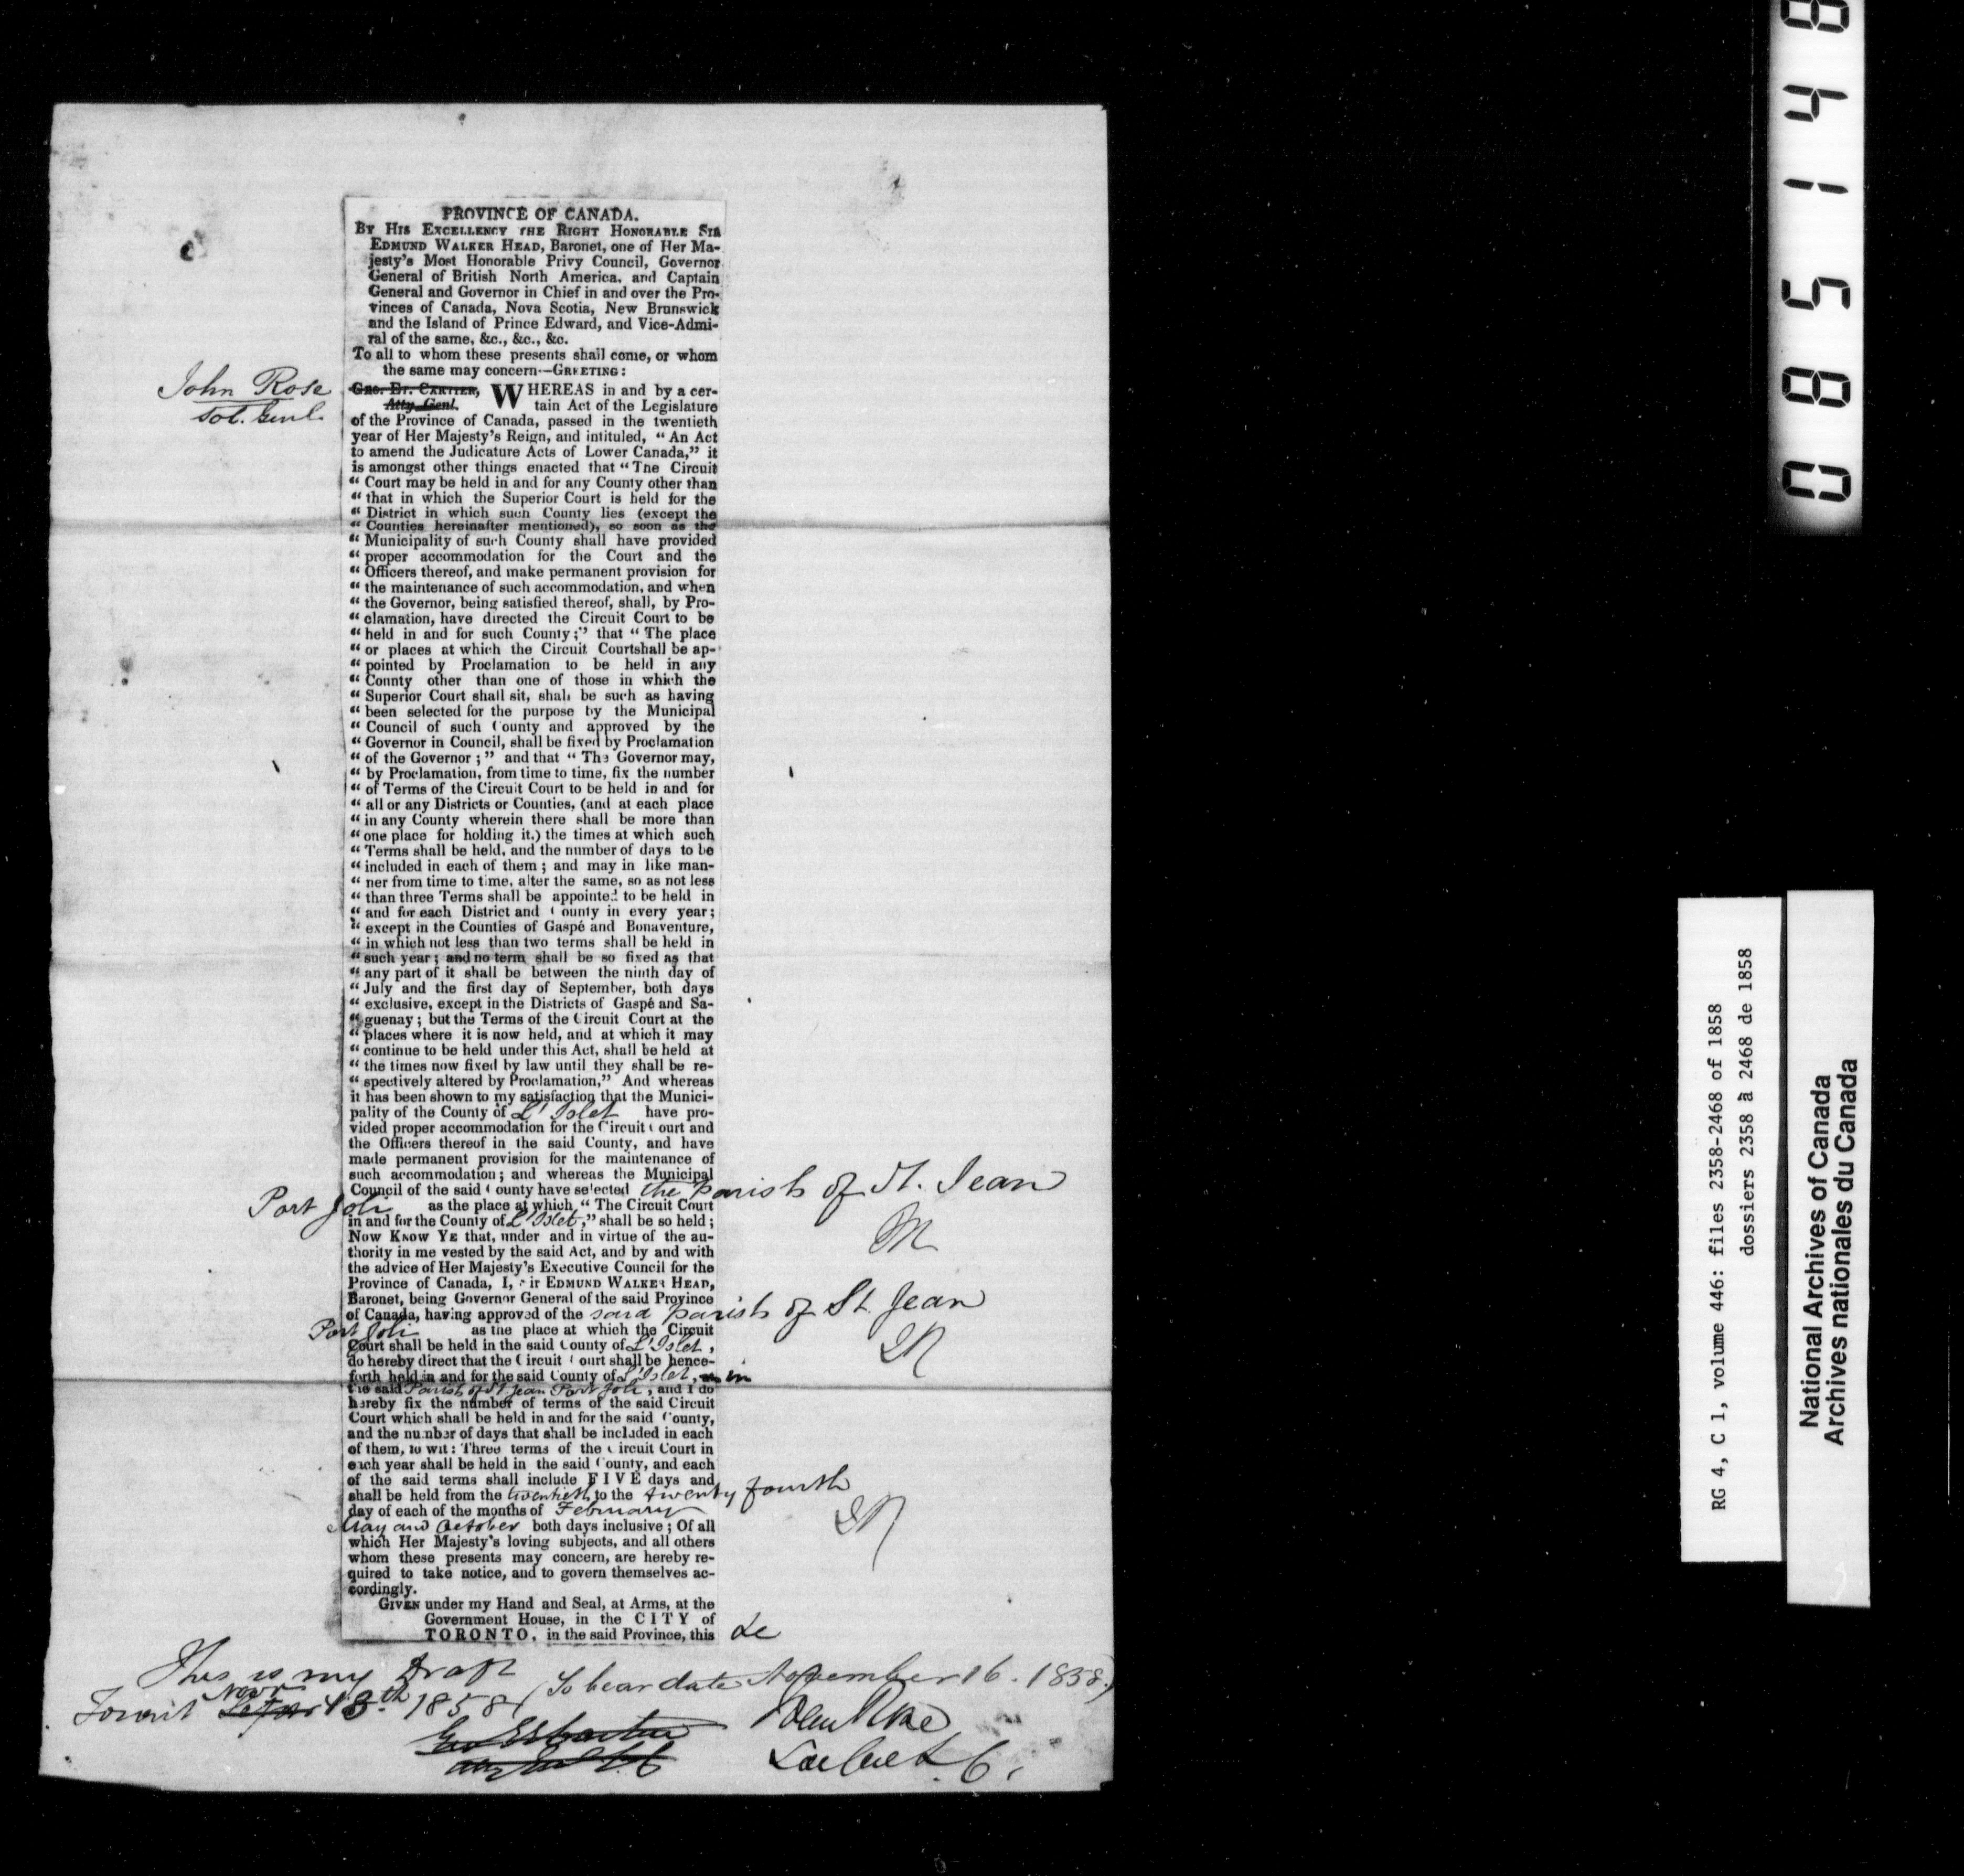 PROVINCE OF CANADA.
BY HIS EXCELLENCY THE RIGHT HONORABLE SIR
EDMUND WALKER HEAD, Baronet, one of Her Ma-
jesty's Most Honorable Privy Council, Governor
General of British North America, and Captain
General and Governor in Chief in and over the Pro-
vinces of Canada, Nova Scotia, New Brunswick
and the Island of Prince Edward, and Vice-Admi-
ral of the same, &c., &c., &c.
To all to whom these presents shall come, or whom
the same may concern—GREETING:
John Rose
Sol. Genl.
GEO. ET. CARTIER,
Atty. Genl.
WHEREAS in and by a cer-
tain Act of the Legislature
of the Province of Canada, passed in the twentieth
year of Her Majesty's Reign, and intituled, "An Act
to amend the Judicature Acts of Lower Canada," it
is amongst other things enacted that "Tne Circuit
" Court may be held in and for any County other than
" that in which the Superior Court is held for the
" District in which such County lies (except the
" Counties hereinafter mentioned), so soon as the
" Municipality of such County shall have provided
" proper accommodation for the Court and the
" Officers thereof, and make permanent provision for
" the maintenance of such accommodation, and when
" the Governor, being satisfied thereof, shall, by Pro-
" clamation, have directed the Circuit Court to be
" held in and for such County;" that "The place
" or places at which the Circuit Courtshall be ap-
" pointed by Proclamation to be held in any
" County other than one of those in which the
" Superior Court shall sit, shall be such as having
" been selected for the purpose by the Municipal
" Council of such County and approved by the
" Governor in Council, shall be fixed by Proclamation
" of the Governor;" and that "The Governor may,
" by Proclamation, from time to time, fix the number
" of Terms of the Circuit Court to be held in and for
" all or any Districts or Counties, (and at each place
" in any County wherein there shall be more than
" one place for holding it,) the times at which such
" Terms shall be held, and the number of days to be
" included in each of them; and may in like man-
" ner from time to time, alter the same, so as not less
" than three Terms shall be appointed to be held in
" and for each District and County in every year;
" except in the Counties of Gaspé and Bonaventure,
" in which not less than two terms shall be held in
" such year; and no term shall be so fixed as that
" any part of it shall be between the ninth day of
" July and the first day of September, both days
" exclusive, except in the Districts of Gaspé and Sa-
" guenay; but the Terms of the Circuit Court at the
" places where it is now held, and at which it may
" continue to be held under this Act, shall be held at
" the times now fixed by law until they shall be re-
" spectively altered by Proclamation," And whereas
it has been shown to my satisfaction that the Munici-
pality of the County of L'Islet have pro-
vided proper accommodation for the Circuit Court and
the Officers thereof in the said County, and have
made permanent provision for the maintenance of
such accommodation; and whereas the Municipal
Council of the said County have selected the Parish of St. Jean
Port Joli as the place at which "The Circuit Court
in and for the County of L'Islet," shall be so held;
NOW KNOW YE that, under and in virtue of the au-
thority in me vested by the said Act, and by and with
the advice of Her Majesty's Executive Council for the
Province of Canada, I, Sir EDMUND WALKER HEAD,
Baronet, being Governor General of the said Province
of Canada, having approved of the said Parish of St. Jean
Port Joli as the place at which the Circuit
Court shall be held in the said County of L'Islet,
do hereby direct that the Circuit Court shall be hence-
forth held in and for the said County of L'Islet, in
the said Parish of St. Jean Port Joli, and I do
hereby fix the number of terms of the said Circuit
Court which shall be held in and for the said County,
and the number of days that shall be included in each
of them, to wit: Three terms of the Circuit Court in
each year shall be held in the said County, and each
of the said terms shall include FIVE days and
shall be held from the twentieth to the twenty fourth
day of each of the months of February
May and October both days inclusive; Of all
which Her Majesty's loving subjects, and all others
whom these presents may concern, are hereby re-
quired to take notice, and to govern themselves ac-
cordingly.
GIVEN under my Hand and Seal, at Arms, at the
Government House, in the CITY of
TORONTO, in the said Province, this &c
This is my Draft
(To bear date November 16. 1858.)
Toronto Novr 13th 1858
John Rose
Sol Genl L.C.
085148
RG 4, C 1, volume 446: files 2358-2468 of 1858
dossiers 2358 à 2468 de 1858
National Archives of Canada
Archives nationales du Canada